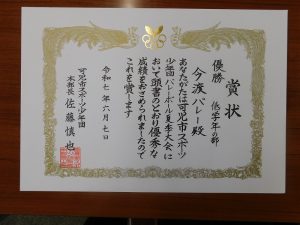 賞状
優勝 低学年の部
今渡バレー殿
あなたがたは可児市スポーツ
少年団バレーボール夏季大会に
おいて頭書のとおり優秀な
成績をおさめられましたので
これを賞します
令和七年六月七日
可児市スポーツ少年団
本部長 佐藤慎也